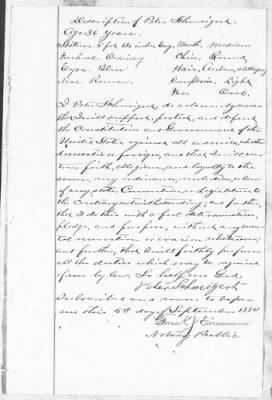 Description of Peter Schweigert.
Age 36 years.
Stature 5 feet 6½ inches Eng. Mouth, Medium
Forehead Ordinary Chin, Round
Eyes Blue Hair, Auburn
Nose Roman Complexion, Light
Face Oval
I Peter Schweigert do solemnly swear
that I will support, protect, and defend
the Constitution and Government of the
United States against all enemies, whether
domestic or foreign; and that I will bear
true faith, allegiance, and loyalty to the
same, any ordinance, resolution, or law
of any State, Convention, or Legislature to
the Contrary notwithstanding; and further,
that I do this with a full determination,
pledge, and purpose, without any men-
tal reservation or evasion whatsoever;
and further, that I will faithfully perform
all the duties which may be required
of me by law. So help me God.
Peter Schweigert
Subscribed and sworn to before
me this 5th day of September 1894
Frank J.
Notary Public